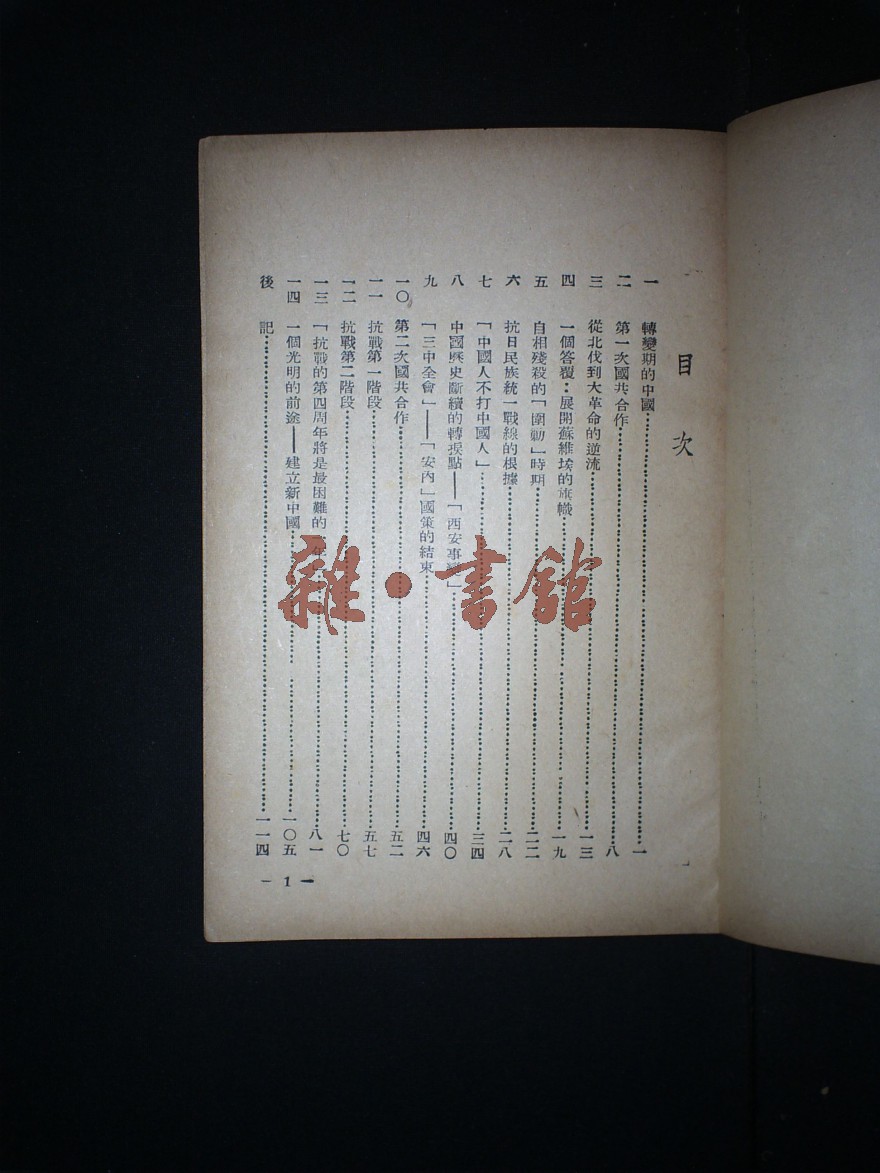 目次
一 轉變期的中國……一
二 第一次國共合作……八
三 從北伐到大革命的逆流……一三
四 一個答覆：展開蘇維埃的旗幟……一九
五 自相殘殺的「圍勦」時期……二二
六 抗日民族統一戰線的根據……二八
七 「中國人不打中國人」……三四
八 中國歷史斷續的轉捩點——「西安事變」……四〇
九 「三中全會」——「安內」國策的結束……四六
一〇 第二次國共合作……五二
一一 抗戰第一階段……五七
一二 抗戰第二階段……七〇
一三 「抗戰的第四周年將是最困難的一年」……八一
一四 一個光明的前途——建立新中國……一〇五
後記……一一四
— 1 —
雜·書館